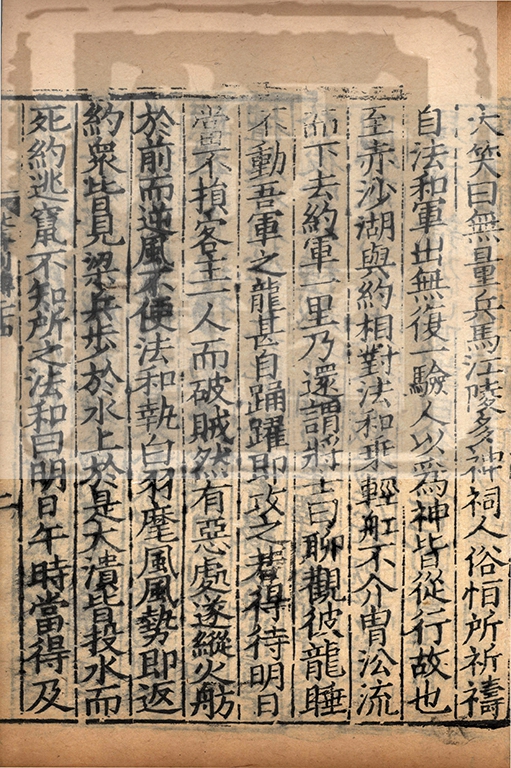 大笑曰無量兵馬江陵多神祠人俗恒所祈禱
自法和軍出無復一驗人以為神皆從行故也
至赤沙湖與約相對法和乗輕舡不介胄㳂流
而下去約軍一里乃還謂將士曰聊觀彼龍睡
不動吾軍之龍甚自踊躍即攻之若得待明日
當不損客主一人而破賊然有惡處遂縱火舫
於前而逆風不便法和執白羽麾風風勢即返
約衆皆見梁兵步於水上於是大潰皆投水而
死約逃竄不知所之法和曰明日午時當得及